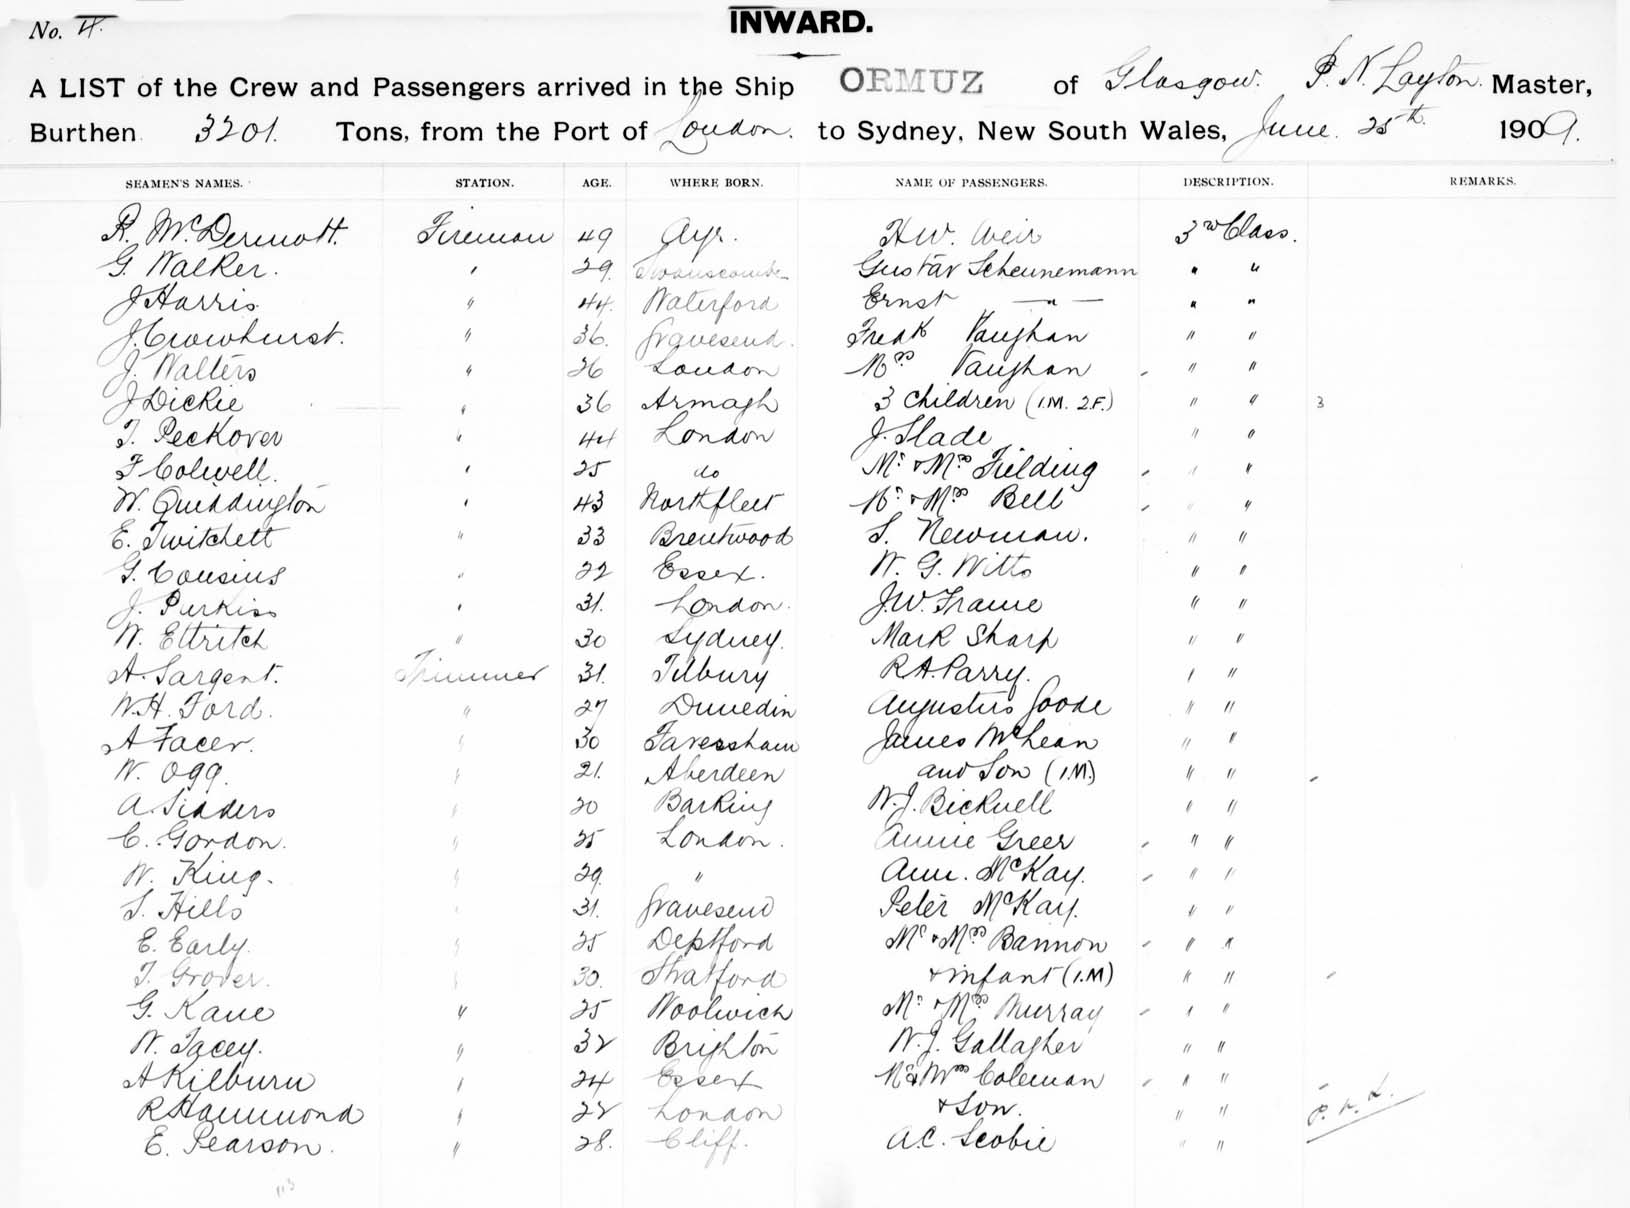 No. 4.
INWARD.
A LIST of the Crew and Passengers arrived in the Ship ORMUZ of Glasgow. P. N. Layton. Master,
Burthen 3201. Tons, from the Port of London. to Sydney, New South Wales, June 25th. 1909.
SEAMEN'S NAMES. STATION. AGE. WHERE BORN. NAME OF PASSENGERS. DESCRIPTION. REMARKS.
R. McDermott. Fireman 49 Ayr. H.W. Weir 3rd Class.
G. Walker. " 29. Swanscombe Gustav Scheunemann " "
J Harris. " 44. Waterford Ernst —"— " "
J. Crowhurst. " 36. Gravesend. Fredk Vaughan " "
J. Walters " 26 London Mrs Vaughan " "
J Dickie " 36 Armagh 3 Children (1.M. 2.F.) " " 3
T. Peckover " 44 London J. Slade " "
F Colwell. " 25 do Mr & Mrs Fielding " "
W. Quiddington " 43 Northfleet Mr & Mrs Bell " "
E. Twitchett " 33 Brentwood S. Newman. " "
G. Cousins " 22 Essex. W. G. Witts " "
J. Purkiss " 31. London. J.W. Frame " "
W. Ettritch " 30 Sydney. Mark Sharp " "
A. Sargent. Trimmer 31. Tilbury R.A. Parry. " "
W.H. Ford. " 27 Dunedin Augustus Goode " "
A Facer. " 30 Faversham James McLean " "
W. Ogg. " 21. Aberdeen and Son (1.M.) " "
A. Sidders " 20 Barking W.J. Bicknell " "
C. Gordon. " 25 London. Annie Greer " "
W. King. " 29. " Ann. McKay. " "
S. Hills " 31. Gravesend Peter McKay. " "
E. Early. " 25 Deptford Mr & Mrs Bannon " "
T. Grover. " 30. Stratford & infant (1.M) " "
G. Kane " 25 Woolwich Mr & Mrs Murray " "
W. Tacey. " 32 Brighton W.J. Gallagher " "
A Kilburn " 24 Essex Mr & Mrs Coleman " "
R Hammond " 22 London & Son. " "
E. Pearson. " 28. Cliff. A.C. Scobie " "